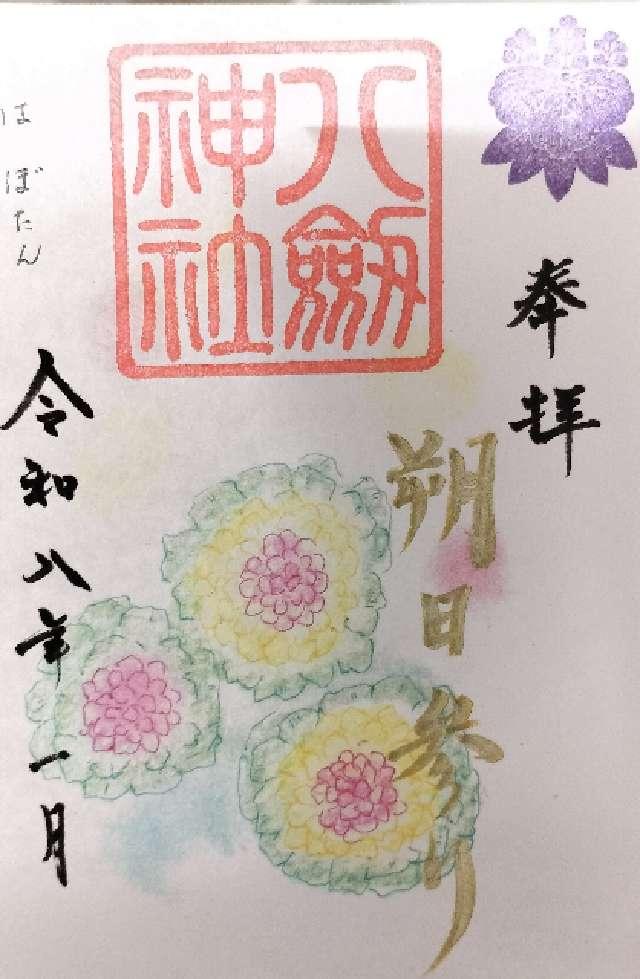 奉拝
朔日参り
八劔神社
令和八年一月
はぼたん